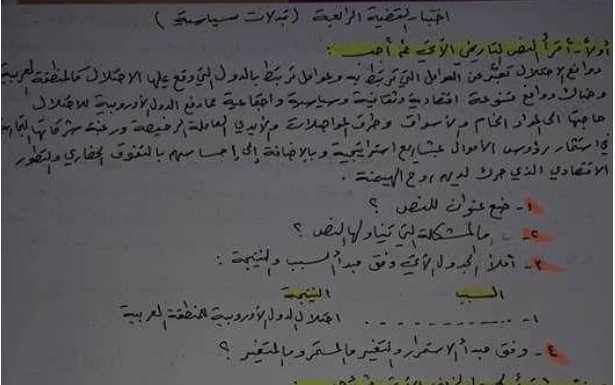 اختبار القضية الرابعة ( تبدلات سياسية )
أولاً - أقرأ النص التاريخي الآتي ثم أجب :
دوافع الاحتلال تعبّر عن العوامل التي ترتبط به وعوامل ترتبط بالدول التي وقع عليها الاحتلال كالمنطقة العربية
وهناك دوافع متنوعة اقتصادية وثقافية وسياسية واجتماعية مما دفع الدول الأوروبية للاحتلال
حاجتها إلى المواد الخام والأسواق وطرق المواصلات والأيدي العاملة الرخيصة ورغبة شركاتها التجارية
في استثمار رؤوس الأموال بمشاريع استراتيجية وبالإضافة إلى إحساسهم بالتفوق الحضاري والتطور
الاقتصادي الذي حرك لديهم روح الهيمنة .
١- ضع عنوان للنص ؟
٢- ما المشكلة التي تناولها النص ؟
٣- أملأ الجدول الآتي وفق مبدأ السبب والنتيجة :
السبب النتيجة
١- .......... احتلال الدول الأوروبية للمنطقة العربية
٤- وفق مبدأ الاستمرار والتغير ما المستمر وما المتغير ؟